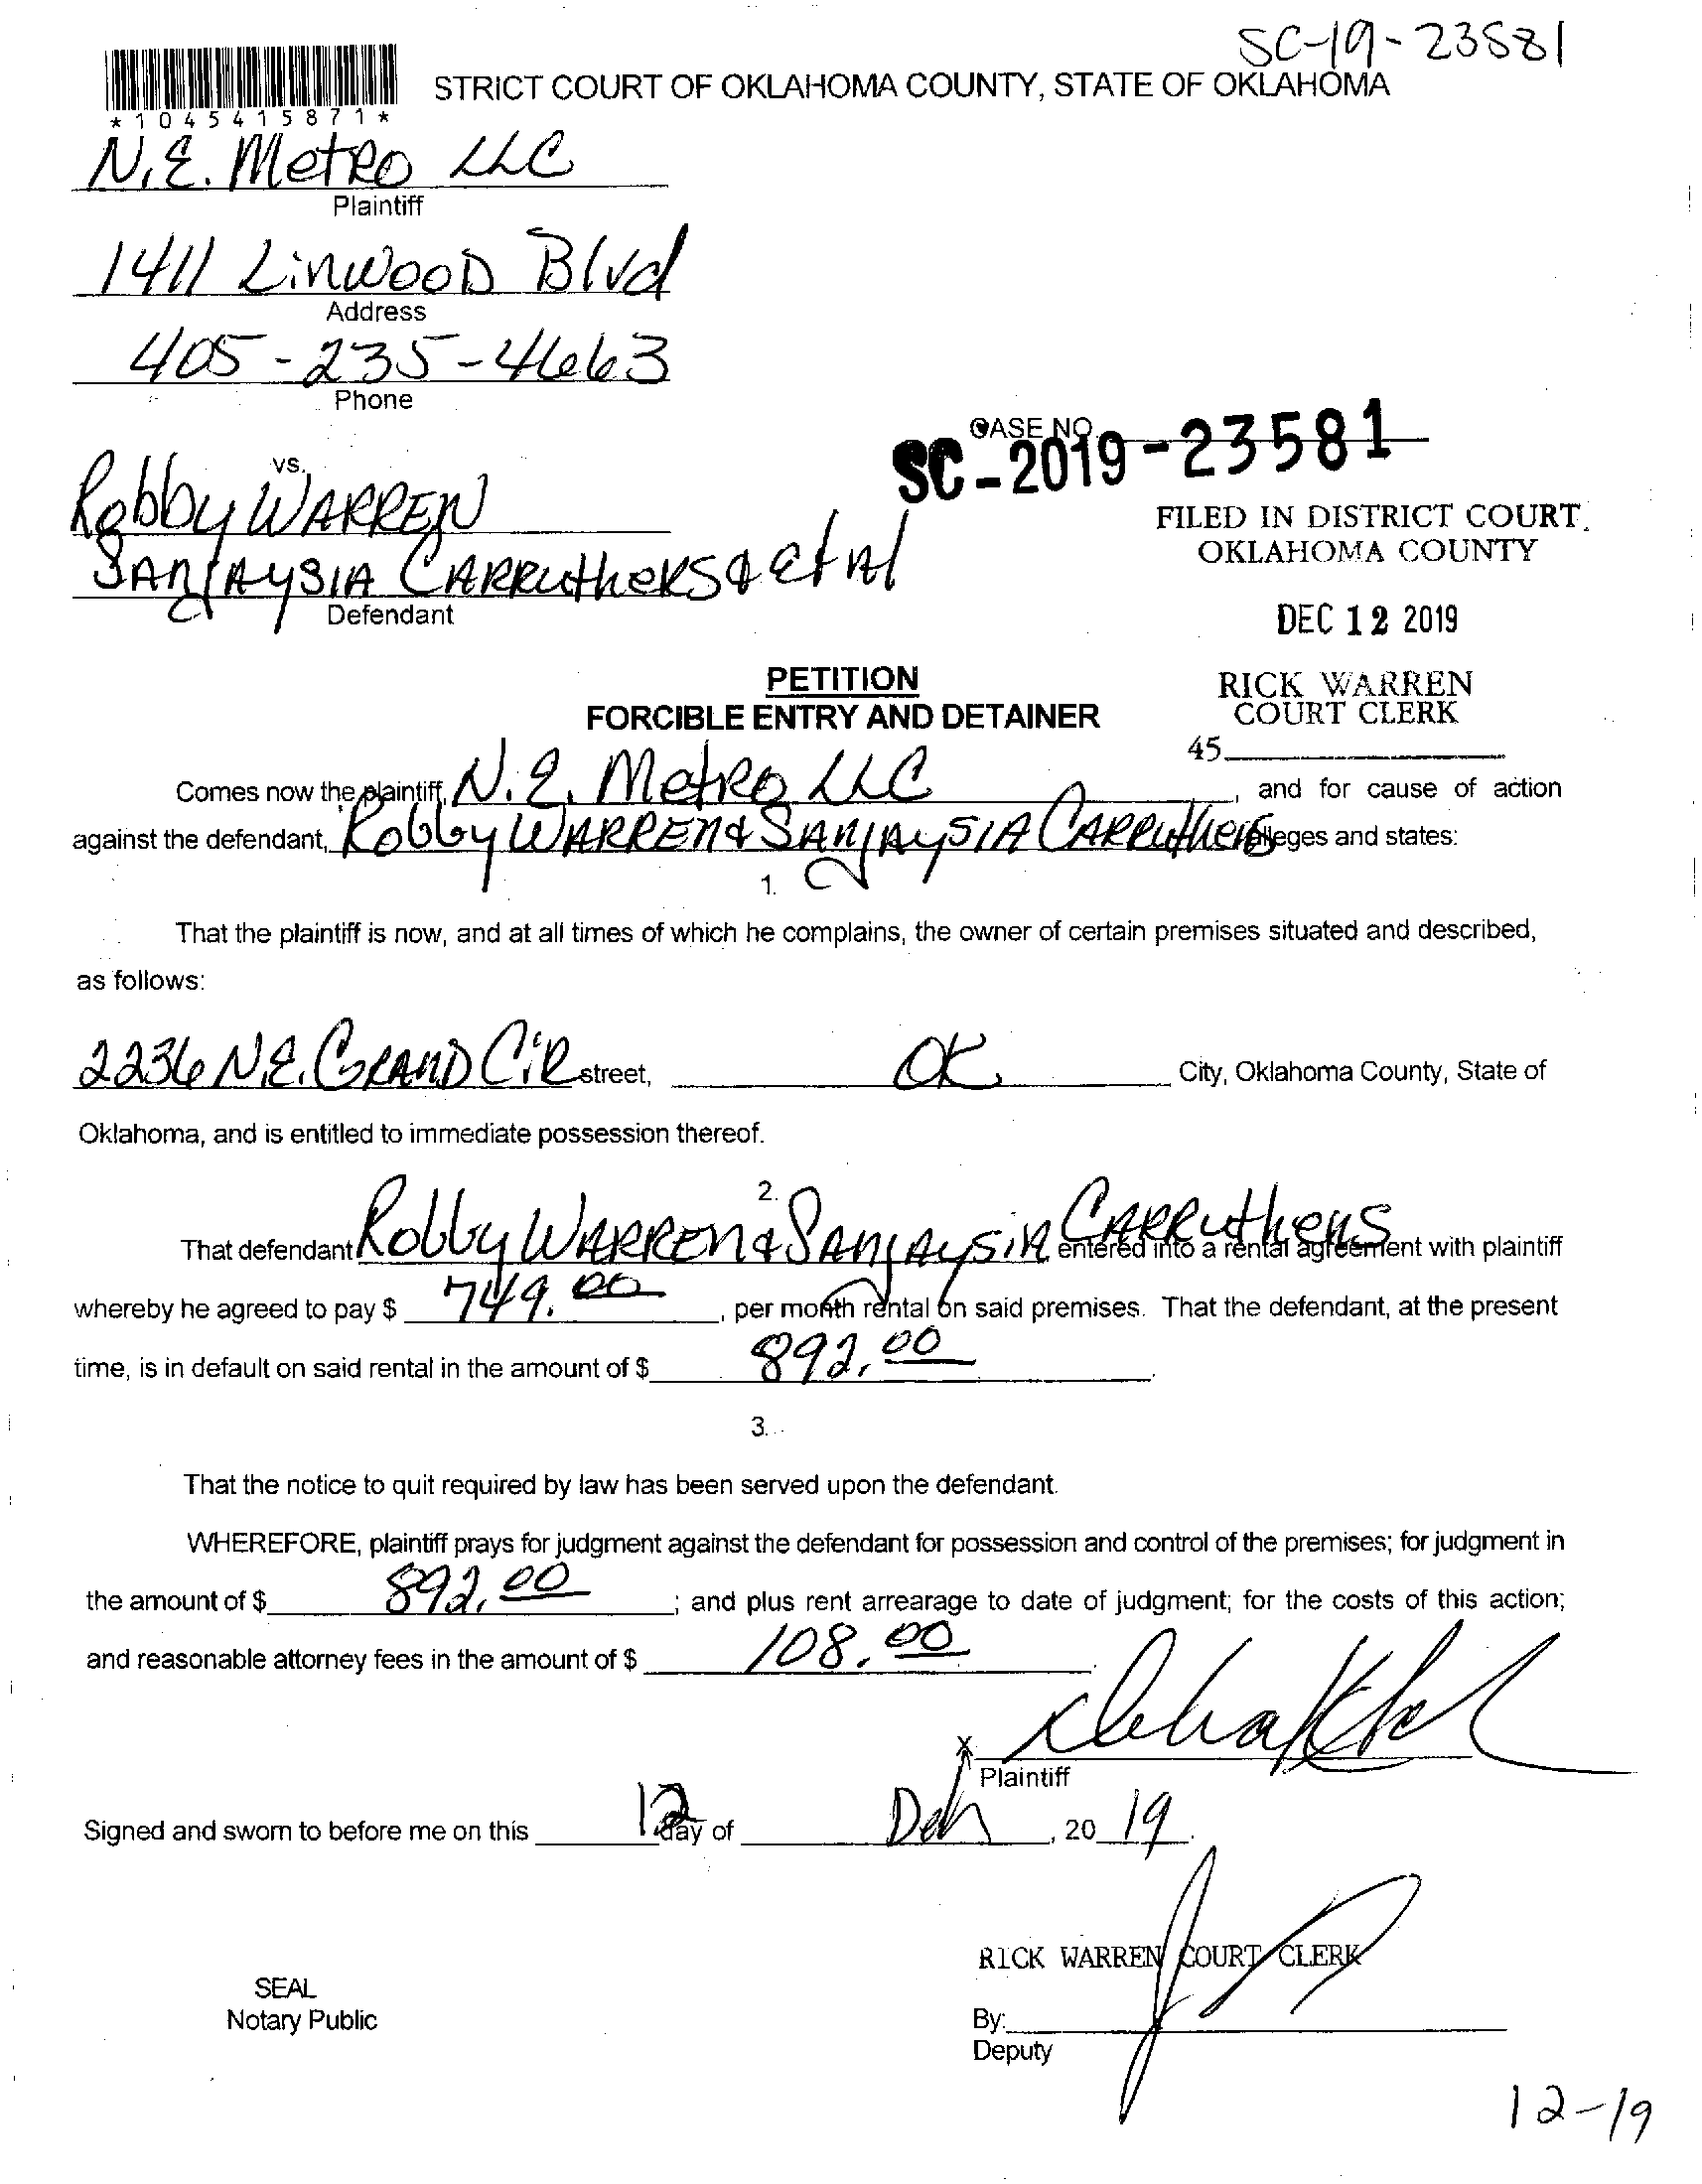 SC-19-23581
STRICT COURT OF OKLAHOMA COUNTY, STATE OF OKLAHOMA
*1045415871*
N.E. Metro LLC
Plaintiff
1411 Linwood Blvd
Address
405-235-4663
Phone
CASE NO.
SC-2019-23581
vs.
Robby WARREN
SANJAYSIA CARRUtheRS & et Al
Defendant
FILED IN DISTRICT COURT
OKLAHOMA COUNTY
DEC 12 2019
RICK WARREN
COURT CLERK
45
PETITION
FORCIBLE ENTRY AND DETAINER
Comes now the plaintiff, N.E. Metro LLC, and for cause of action
against the defendant, Robby WARREN & SANJAYSIA CARRUtheRS alleges and states:
1.
That the plaintiff is now, and at all times of which he complains, the owner of certain premises situated and described,
as follows:
2236 N.E. GRAND CiR street, OK City, Oklahoma County, State of
Oklahoma, and is entitled to immediate possession thereof.
2.
That defendant Robby WARREN & SANJAYSIA CARRUtheRS entered into a rental agreement with plaintiff
whereby he agreed to pay $ 749.00, per month rental on said premises. That the defendant, at the present
time, is in default on said rental in the amount of $ 892.00.
3.
That the notice to quit required by law has been served upon the defendant.
WHEREFORE, plaintiff prays for judgment against the defendant for possession and control of the premises; for judgment in
the amount of $ 892.00; and plus rent arrearage to date of judgment; for the costs of this action;
and reasonable attorney fees in the amount of $ 108.00.
X
Plaintiff
Signed and sworn to before me on this 12 day of , 20 19.
RICK WARREN COURT CLERK
SEAL
Notary Public
By:
Deputy
12-19